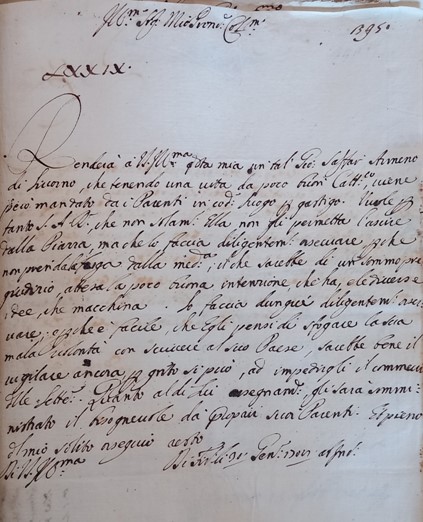 Ill.mo Sig. Mio Pron. Col.mo
1395.
LXXIX.
Renderà à V. S. Ill.ma q.ta mia un tal Gio. Saffar Armeno
di Livorno, che tenendo una vita da poco buon Catt.co, viene
però mandato da i Parenti in cod.o luogo p gastigo. Vuole p
tanto S. A. R., che non Sia.. Ella non gli permetta l'uscire
dalla Piazza, ma che lo faccia diligentem. osservare, p che
non prenda la fuga dalla med.ma, il che sarebbe di un sommo pre
giudizio attesa la poco buona intenzione, che ha, e le diverse
idee, che macchina. Lo faccia dunque diligentem. osser
vare, e p che è facile, che Egli pensi di sfogare la sua
mala volontà con scrivere al suo Paese, sarebbe bene il
vigilare ancora p q.to si può, ad impedirgli il commercio
delle lettere. Quanto al di lui assegnam. gli sarà sommi-
nistrato il bisognevole da proprj suoi Parenti. E pieno
del mio solito ossequio resto
Di V. S. Ill.ma